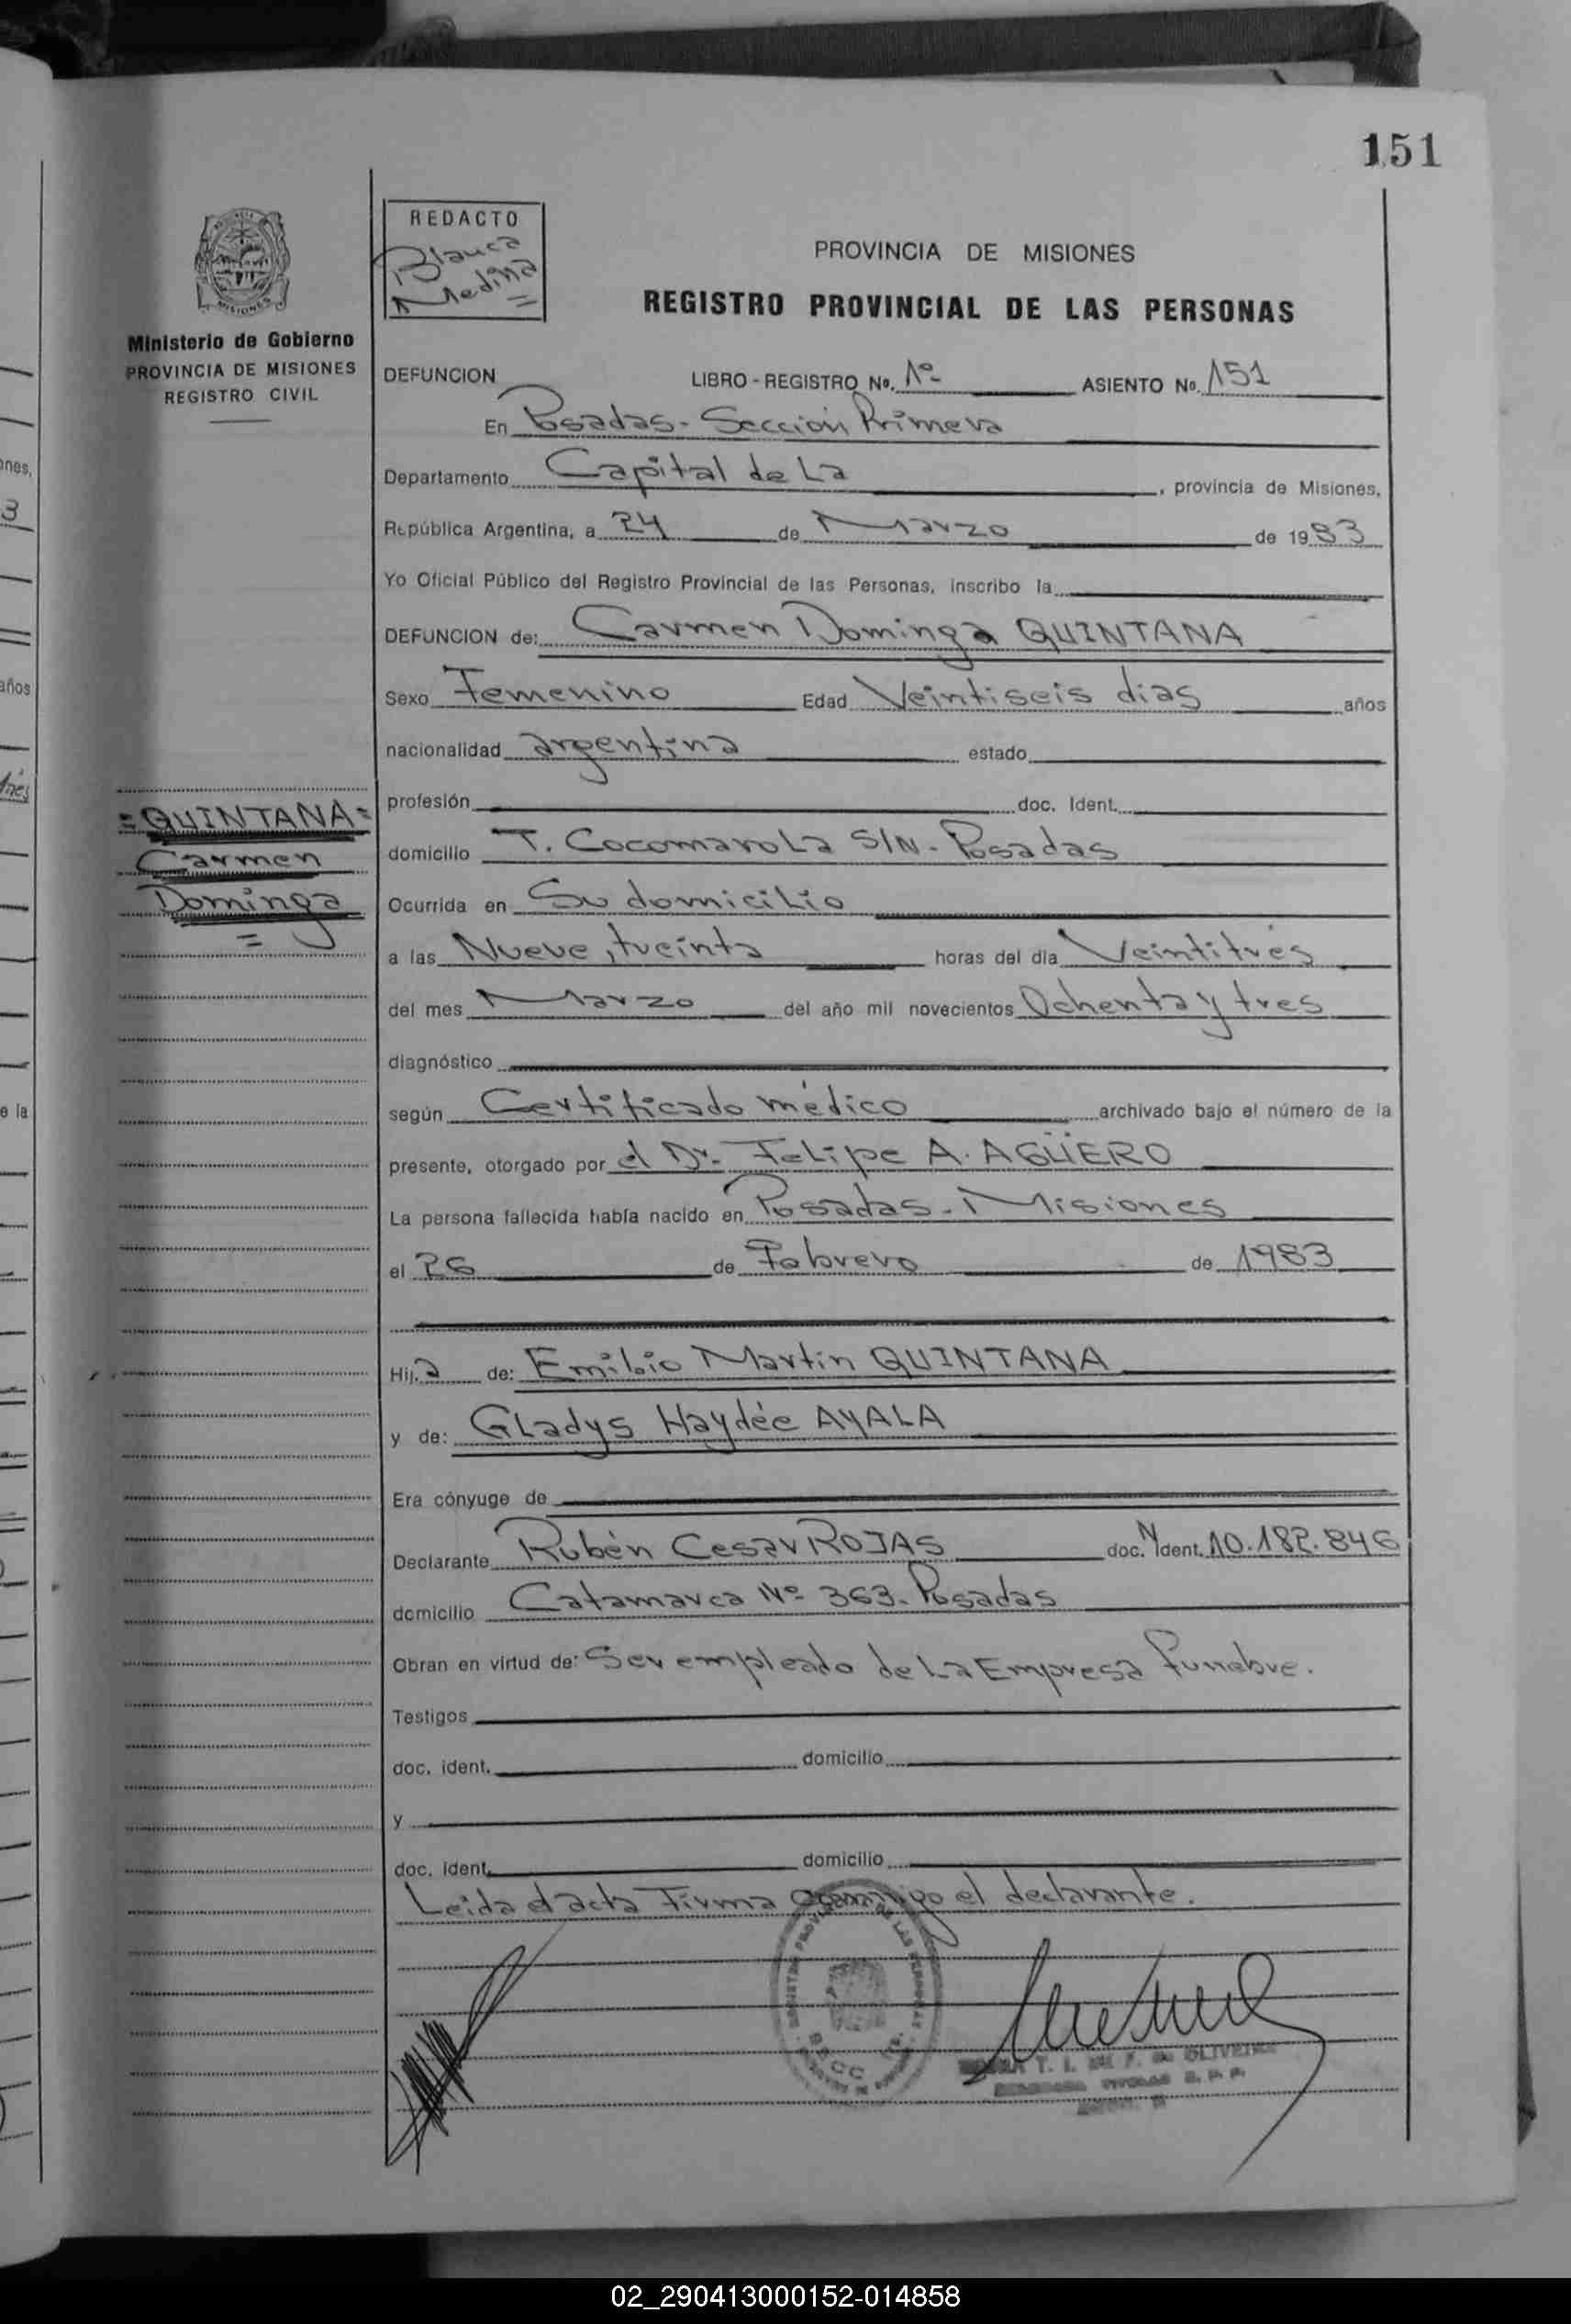 151
REDACTO
Blanca
Medina
PROVINCIA DE MISIONES
REGISTRO PROVINCIAL DE LAS PERSONAS
Ministerio de Gobierno
PROVINCIA DE MISIONES
REGISTRO CIVIL
DEFUNCION LIBRO - REGISTRO Nº. 1º ASIENTO Nº. 151
En Posadas - Sección Primera
Departamento Capital de La, provincia de Misiones,
República Argentina, a 24 de Marzo de 1983
Yo Oficial Público del Registro Provincial de las Personas, inscribo la
DEFUNCION de: Carmen Dominga QUINTANA
Sexo Femenino Edad Veintiseis dias años
nacionalidad argentina estado
profesión doc. Ident.
=QUINTANA=
Carmen
Dominga
=
domicilio T. Cocomarola S/N - Posadas
Ocurrida en Su domicilio
a las Nueve, treinta horas del día Veintitrés
del mes Marzo del año mil novecientos Ochenta y tres
diagnóstico
según Certificado médico archivado bajo el número de la
presente, otorgado por el Dr. Felipe A. AGÜERO
La persona fallecida había nacido en Posadas - Misiones
el 26 de Febrero de 1983
Hij.a de: Emilio Martin QUINTANA
y de: Gladys Haydée AYALA
Era cónyuge de
Declarante Rubén Cesar ROJAS doc. N ident. 10.182.846
domicilio Catamarca Nº 363 - Posadas
Obran en virtud de: Ser empleado de La Empresa Funebre.
Testigos
doc. ident. domicilio
y
doc. ident. domicilio
Leida el acta Firma conmigo el declarante.
02_290413000152-014858